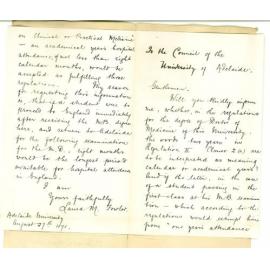 To the Council of the
University of Adelaide.
Gentlemen.
Will you kindly inform
me, whether, in the regulations
for the degree of Doctor of
Medicine of this University,
the words "two years" in
Regulation (Clause 2a) are
to be interpreted as meaning
calendar or academical years?
And if the latter, in the case
of a student passing in the
first class at his M.B. examina-
tion - which according to the
regulations would exempt him
from one year's attendance
on Clinical or Practical Medicine
- an academical year's hospital
attendance, of not less than eight
calendar months, would be
accepted as fulfilling those
regulations. My reason
for requesting this information
is, that if a student were to
proceed to England immediately
after receiving the M.B. degree
here, and return to Adelaide
for the following examinations
for the M.D., eight months
would be the longest period
available for hospital attendance
in England.
I am
Yours faithfully
Laura M. Fowler.
Adelaide University
August 27th 1891.